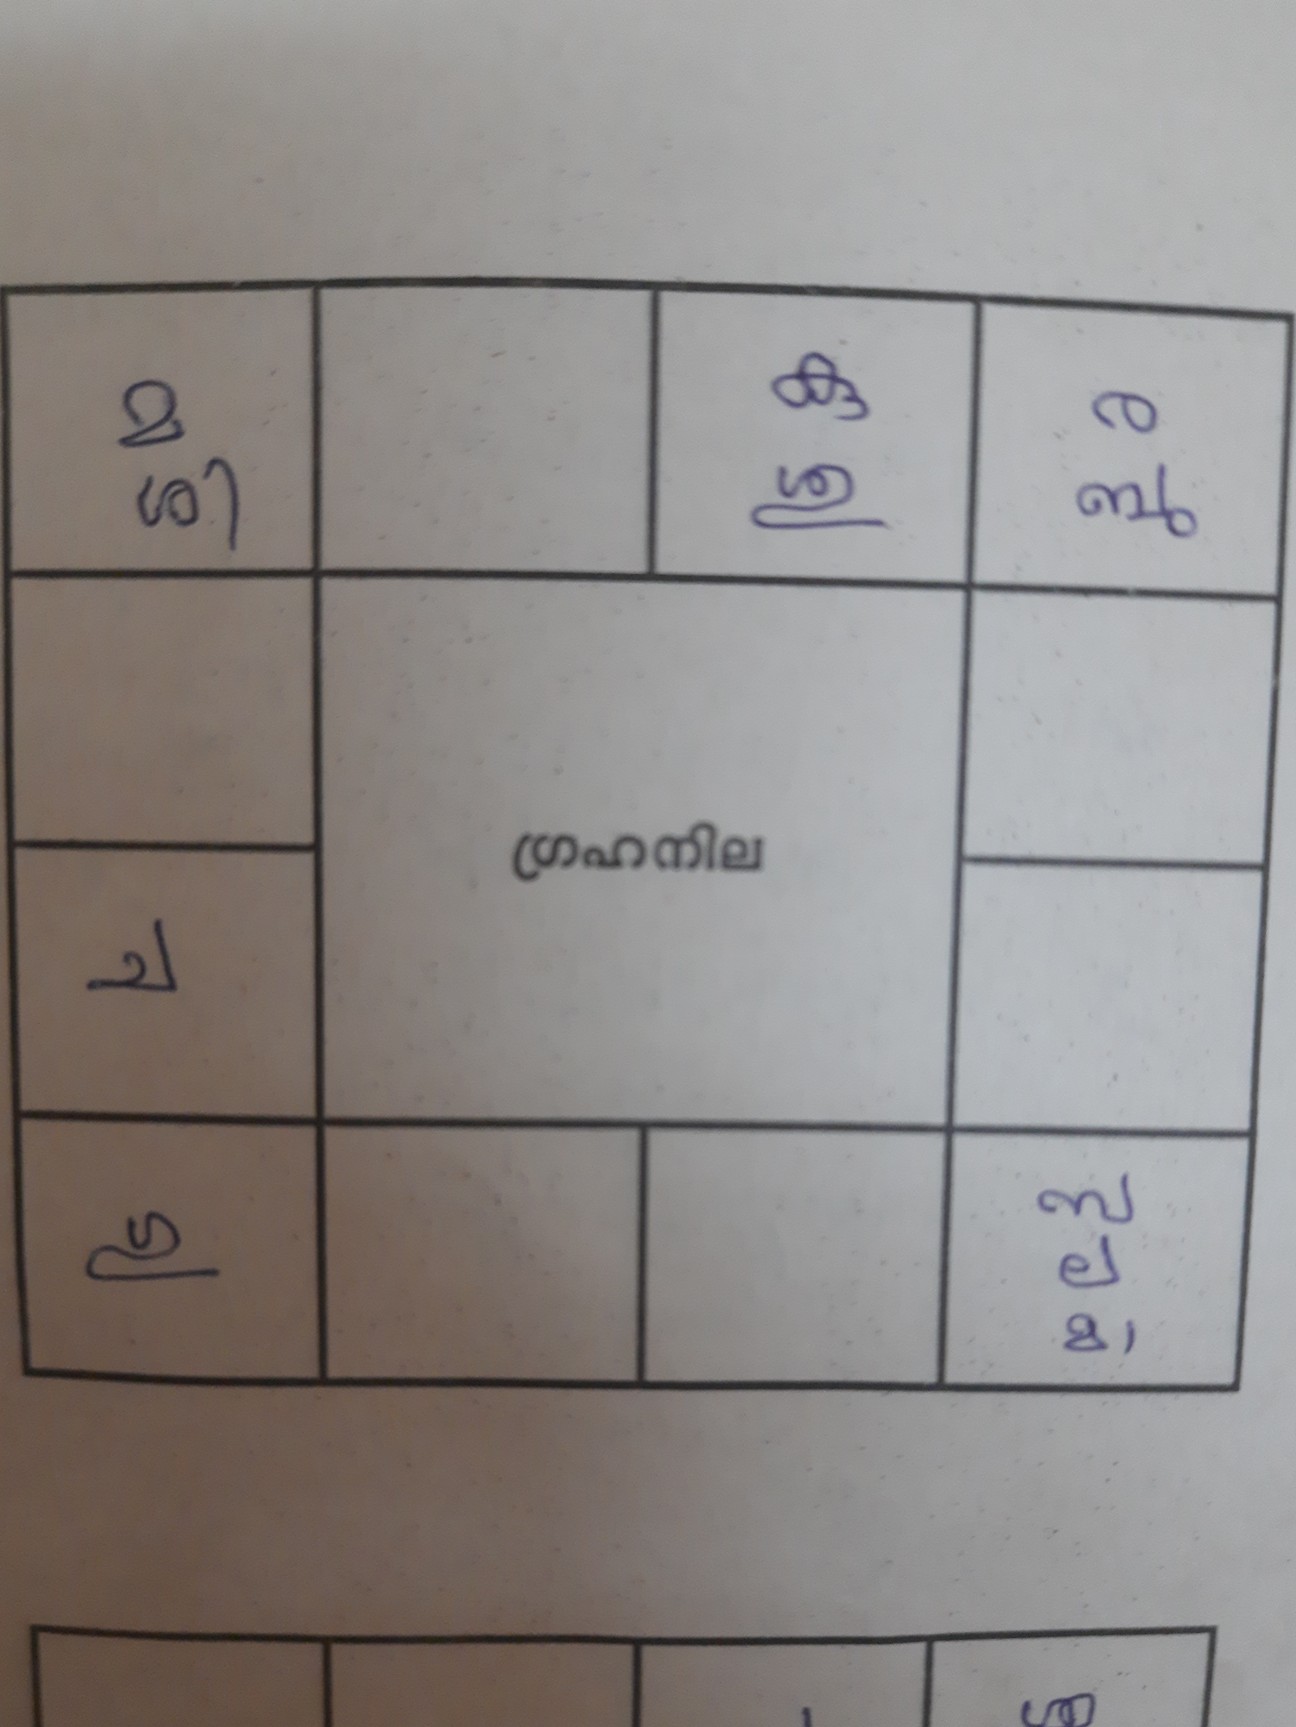 മ
ശി
കു
ശു
ര
ബു
ഗ്രഹനില
ച
ഗു
സ
ല
മാ